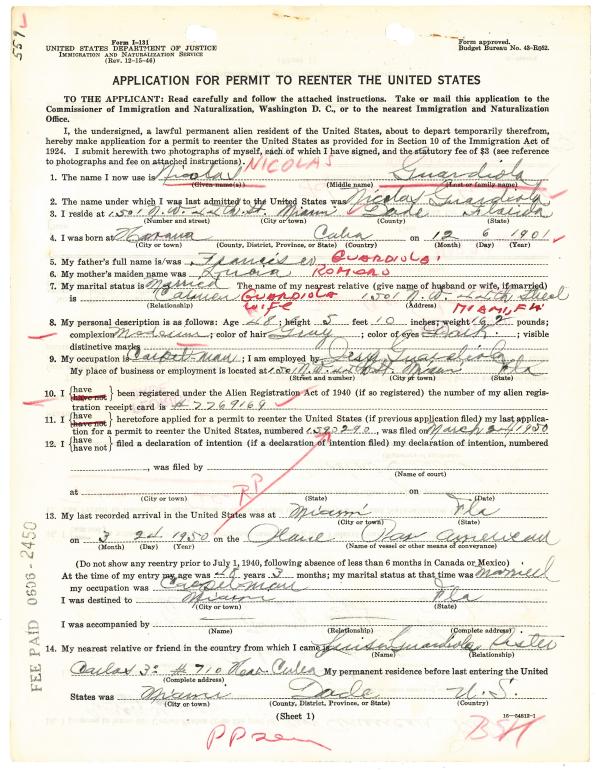 559
Form I-131
UNITED STATES DEPARTMENT OF JUSTICE
IMMIGRATION AND NATURALIZATION SERVICE
(Rev. 12-15-46)
Form approved.
Budget Bureau No. 43-R062.
APPLICATION FOR PERMIT TO REENTER THE UNITED STATES
TO THE APPLICANT: Read carefully and follow the attached instructions. Take or mail this application to the
Commissioner of Immigration and Naturalization, Washington D. C., or to the nearest Immigration and Naturalization
Office.
I, the undersigned, a lawful permanent alien resident of the United States, about to depart temporarily therefrom,
hereby make application for a permit to reenter the United States as provided for in Section 10 of the Immigration Act of
1924. I submit herewith two photographs of myself, each of which I have signed, and the statutory fee of $3 (see reference
to photographs and fee on attached instructions).
NICOLAS
1. The name I now use is Nicolas Guardiola
(Given name(s)) (Middle name) (Last or family name)
2. The name under which I was last admitted to the United States was Nicolas Guardiola
3. I reside at 1501 N.W. 22th St. Miami Dade Florida
(Number and street) (City or town) (County) (State)
4. I was born at Havana Cuba on 12 6 1901
(City or town) (County, District, Province, or State) (Country) (Month) (Day) (Year)
5. My father's full name is/was Francisco GUARDIOLA
6. My mother's maiden name was ROMERO
7. My marital status is Married The name of my nearest relative (give name of husband or wife, if married)
is Carmen GUARDIOLA 1501 N.W. 22th Street
(Relationship) WIFE (Address) MIAMI, FLA
8. My personal description is as follows: Age 48; height 5 feet 10 inches; weight 162 pounds;
complexion Medium; color of hair Gray; color of eyes Dark; visible
distinctive marks
9. My occupation is Carpet-man; I am employed by Guardiola
My place of business or employment is located at 1501 N.W. 22th St. Miami Fla
(Street and number) (City or town) (State)
10. I {have have not} been registered under the Alien Registration Act of 1940 (if so registered) the number of my alien regis-
tration receipt card is #7769169
11. I {have have not} heretofore applied for a permit to reenter the United States (if previous application filed) my last applica-
tion for a permit to reenter the United States, numbered 1590290, was filed on March 24 1950
12. I {have have not} filed a declaration of intention (if a declaration of intention filed) my declaration of intention, numbered
, was filed by
(Name of court)
at on
(City or town) (State) (Date)
RP
13. My last recorded arrival in the United States was at Miami Fla
(City or town) (State)
on 3 24 1950 on the Plane Pan American
(Month) (Day) (Year) (Name of vessel or other means of conveyance)
(Do not show any reentry prior to July 1, 1940, following absence of less than 6 months in Canada or Mexico)
At the time of my entry my age was 48 years 3 months; my marital status at that time was married
my occupation was Carpet-man
I was destined to Miami Fla
(City or town) (State)
I was accompanied by
(Name) (Relationship) (Complete address)
14. My nearest relative or friend in the country from which I came is Guardiola Sister
(Name) (Relationship)
Carlos 3º #710 Hav. Cuba My permanent residence before last entering the United
(Complete address)
States was Miami Dade U.S.
(City or town) (County, District, Province, or State) (Country)
(Sheet 1)
16-54812-1
FEE PAID 0606-2450